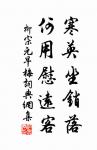 寒英坐銷落
何用慰遠客
柳宗元早梅詞典網集